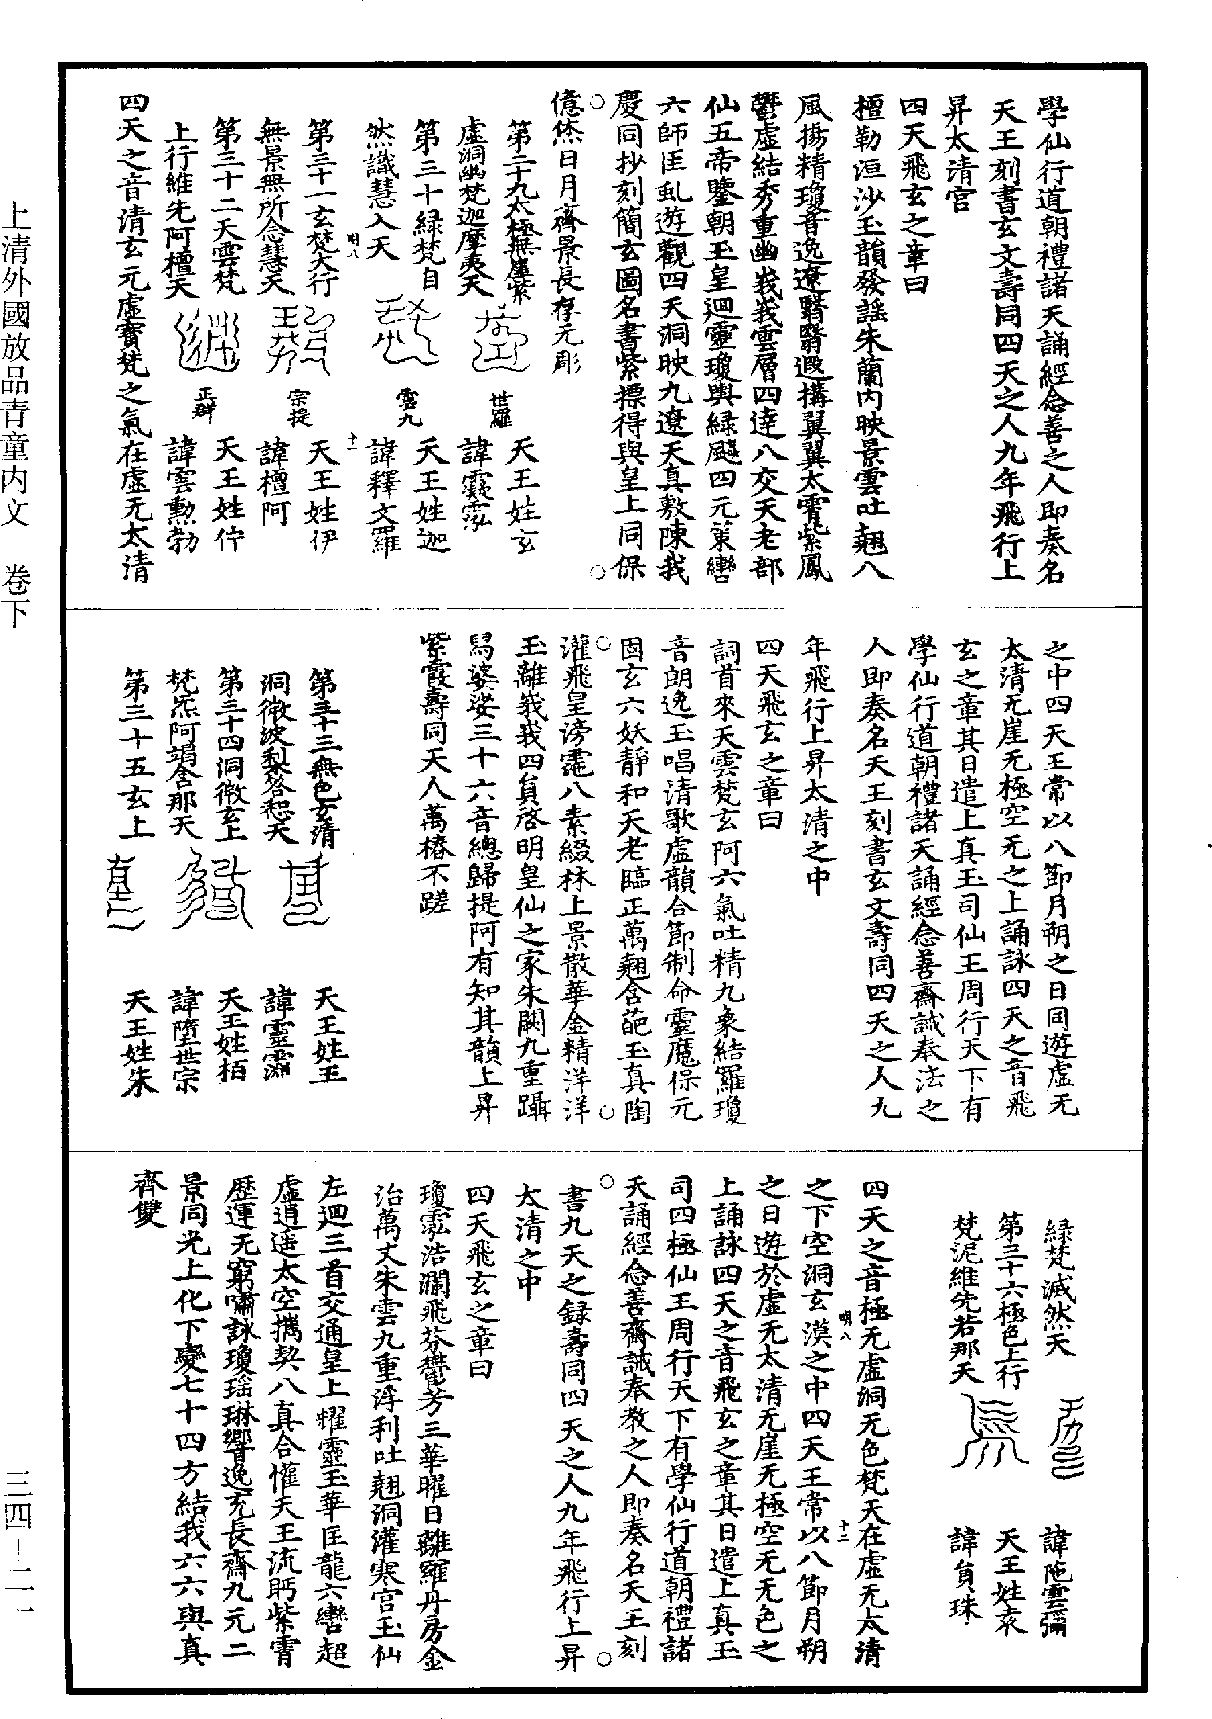 上清外國放品青童內文　卷下
三四—二一
學仙行道朝禮諸天誦經念善之人即奏名
天王刻書玄文壽同四天之人九年飛行上
昇太清宮
四天飛玄之章曰
檀勒洹沙玉韻發謠朱蘭內映景雲吐翹八
風揚精瓊音逸遼翳翳遐搆翼翼太霄紫鳳
鬱虛結秀重幽峩峩雲層四達八交天老部
仙五帝鑒朝玉皇迴靈瓊輿綠飇四元策轡
六師匡虬遊觀四天洞映九遼天真敷陳我
慶同抄刻簡玄圖名書紫摽得與皇上同保
億烋日月齊景長存元彫
第二十九太極無崖紫
虛洞幽梵迦摩夷天
世羅
天王姓玄
諱霐霐
第三十綠梵自
然識慧入天
雲九
天王姓迦
諱釋文羅
第三十一玄梵大行
無景無所念慧天
明八
宗提
天王姓伊
諱檀阿
十一
第三十二天雲梵
上行維先阿檀天
正群
天王姓佇
諱雲勳勃
四天之音清玄元虛寶梵之氣在虛无太清
之中四天王常以八節月朔之日同遊虛无
太清无崖无極空无之上誦詠四天之音飛
玄之章其日遣上真玉司仙王周行天下有
學仙行道朝禮諸天誦經念善齋誡奉法之
人即奏名天王刻書玄文壽同四天之人九
年飛行上昇太清之中
四天飛玄之章曰
詞首來天雲梵玄阿六氣吐精九象結羅瓊
音朗逸玉唱清歌虛韻合節制命靈魔保元
固玄六妖靜和天老臨正萬翹含葩玉真陶
灌飛皇滂霐八素綴林上景散華金精洋洋
玉離峩峩四負啓明皇仙之家朱闕九重躡
舄婆娑三十六音總歸提阿有知其韻上昇
紫霞壽同天人萬椿不蹉
第三十三無色玄清
洞微波梨荅惒天
天王姓玉
諱靈霈
第三十四洞微玄上
梵炁阿竭含那天
天王姓栢
諱墮世宗
第三十五玄上
天王姓朱
綠梵滅然天
諱陁雲彌
第三十六極色上行
梵泥維先若那天
天王姓哀
諱負珠
四天之音極无虛洞无色梵天在虛无太清
明八
十二
之下空洞玄漠之中四天王常以八節月朔
之日遊於虛无太清无崖无極空无无色之
上誦詠四天之音飛玄之章其日遣上真玉
司四極仙王周行天下有學仙行道朝禮諸
天誦經念善齋誡奉教之人即奏名天王刻
書九天之錄壽同四天之人九年飛行上昇
太清之中
四天飛玄之章曰
瓊霐浩瀾飛芬鬱芳三華曜日離羅丹房金
治萬丈朱雲九重浮利吐翹洞灌寒宮玉仙
左迴三首交通皇上耀靈玉華匡龍六轡超
虛逍遙太空攜契八真合懽天王流眄紫霄
歷運无窮嘯詠瓊瑤琳響逸充長齊九元二
景同光上化下變七十四方結我六六與真
齊雙